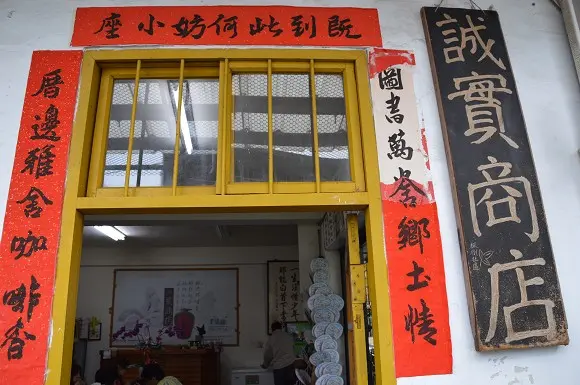 既到此何妨小座
圖書萬卷鄉土情
厝邊雅舍咖啡香
誠實商店